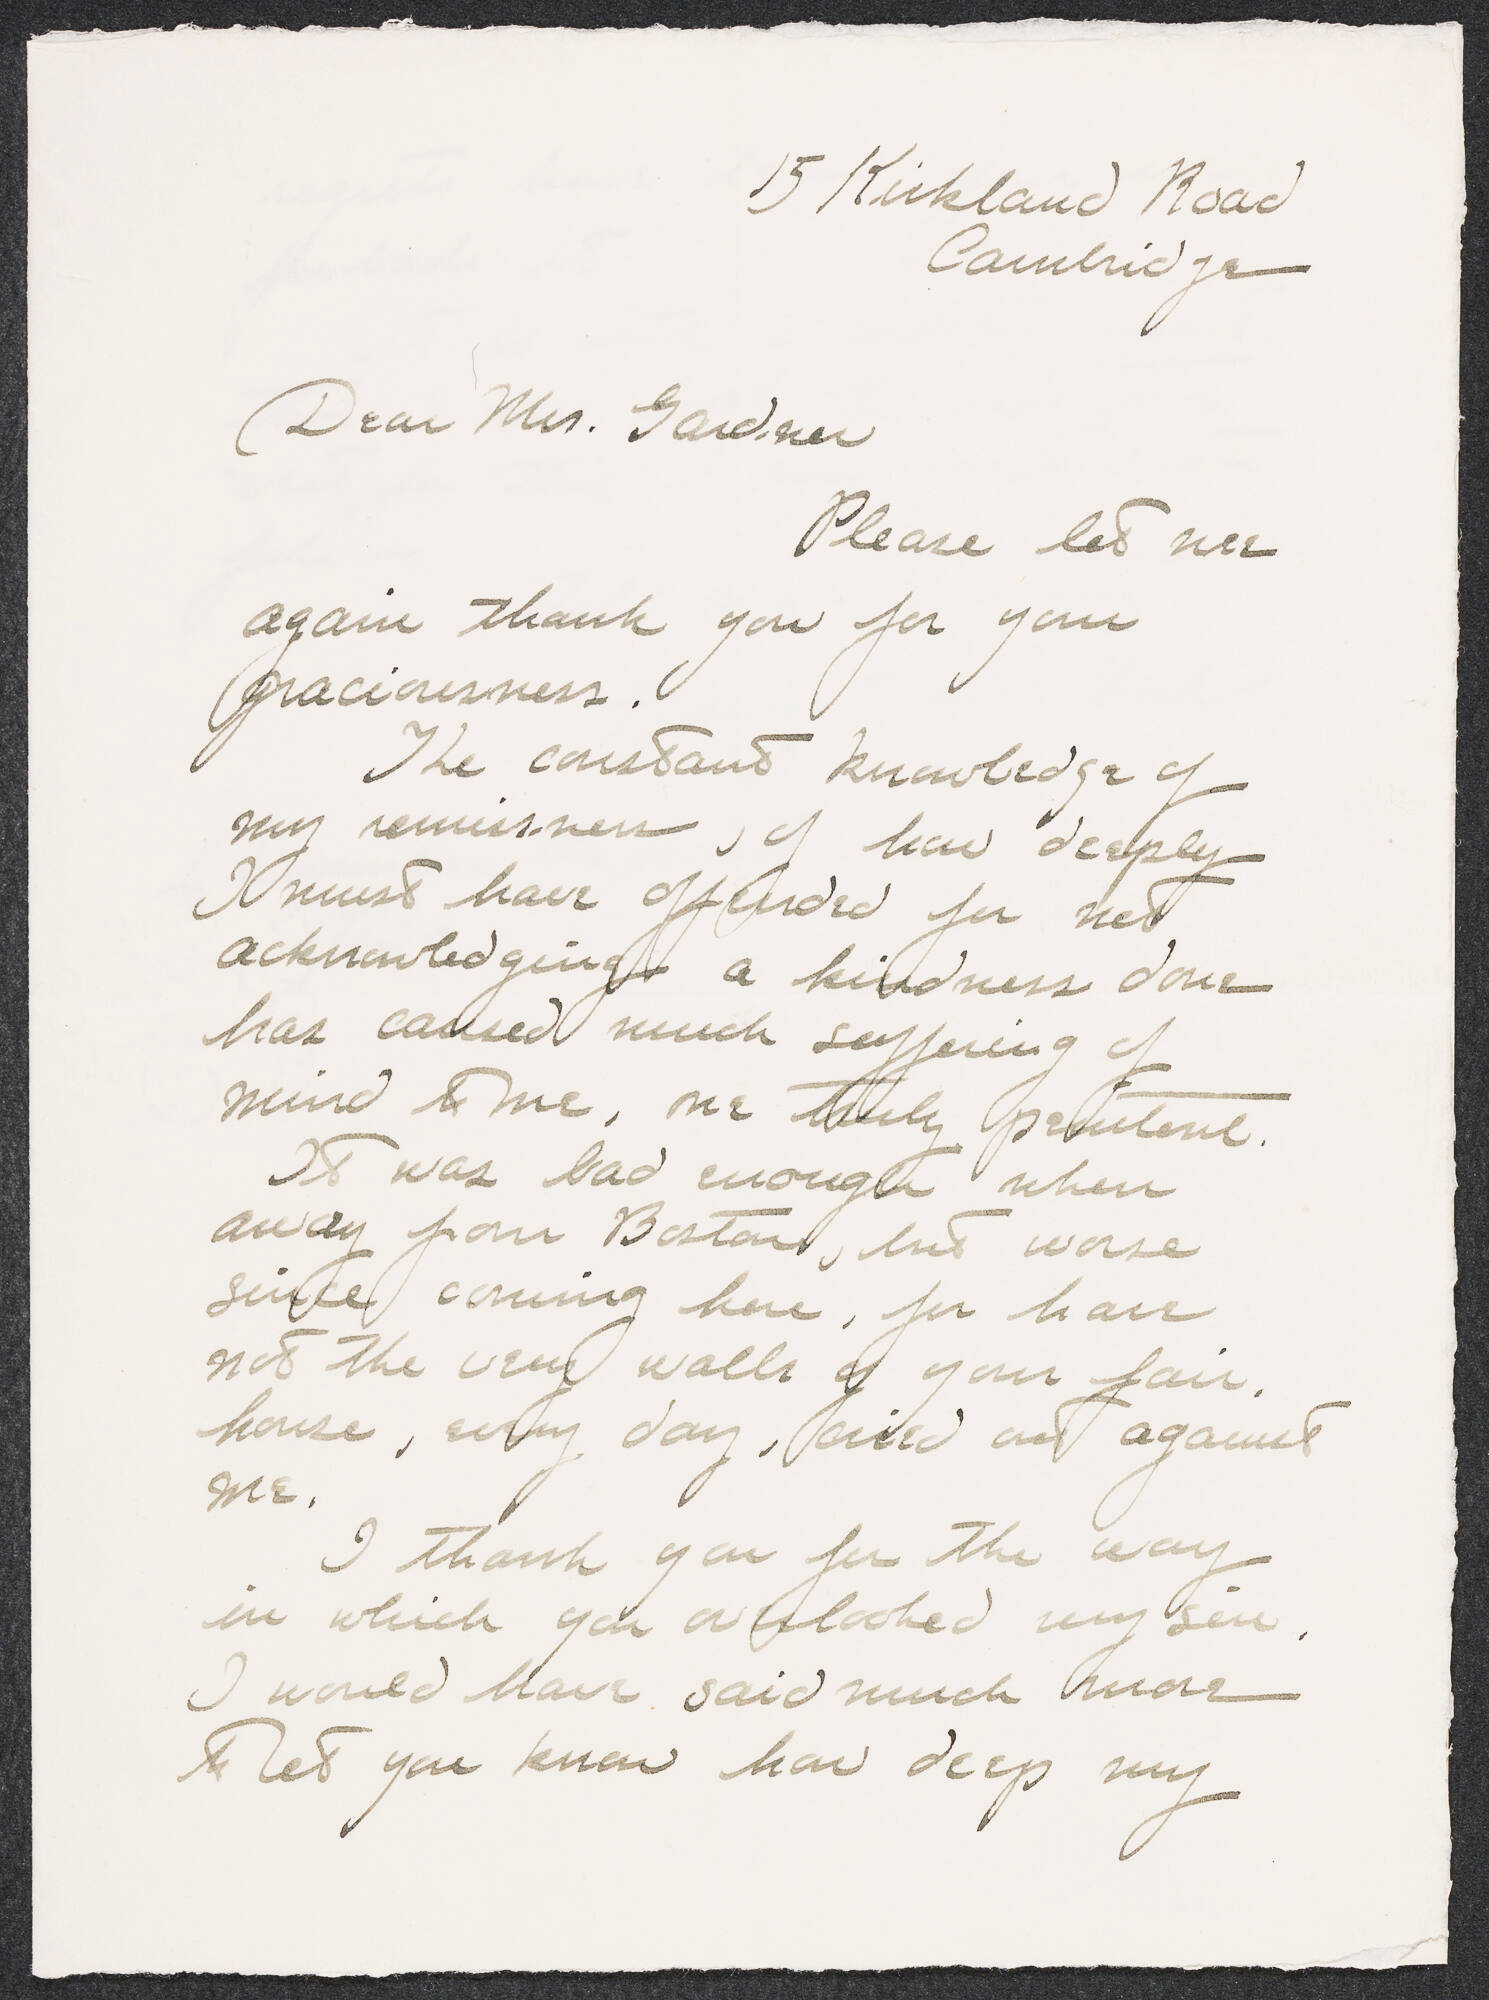 15 Kirkland Road
Cambridge
Dear Mrs. Gardner
Please let me
again thank you for your
graciousness.
The constant knowledge of
my remissness, of how deeply
I must have offended for not
acknowledging a kindness done
has caused much suffering of
mind to me, one truly penitent.
It was bad enough when
away from Boston, but worse
since coming here, for have
not the very walls of your fair
house, every day, cried out against
me.
I thank you for the way
in which you overlooked my sin.
I would have said much more
to let you know how deep my